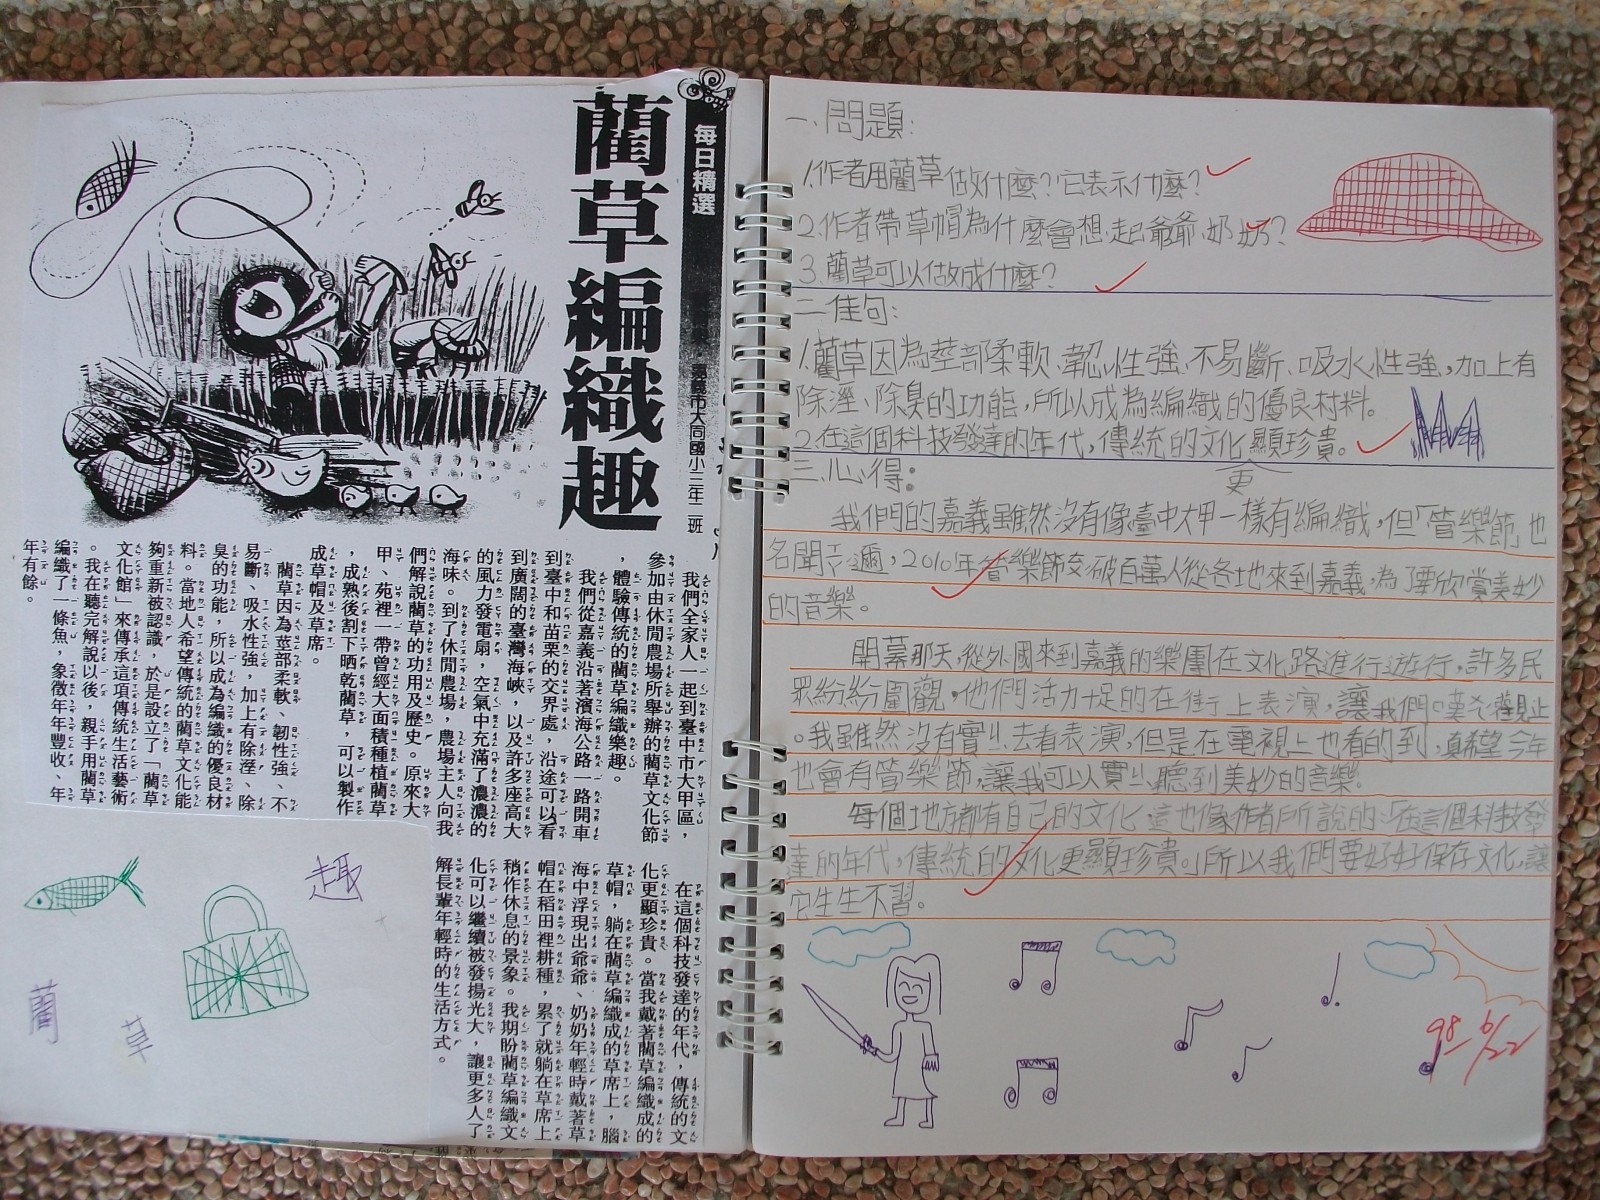 每日精選
藺草編織趣
嘉義市大同國小三年二班
我們全家人一起到臺中市大甲區，
參加由休閒農場所舉辦的藺草文化節
，體驗傳統的藺草編織樂趣。
我們從嘉義沿著濱海公路一路開車
到臺中和苗栗的交界處，沿途可以看
到廣闊的臺灣海峽，以及許多座高大
的風力發電扇，空氣中充滿了濃濃的
海味。到了休閒農場，農場主人向我
們解說藺草的功用及歷史。原來大
甲、苑裡一帶曾經大面積種植藺草
，成熟後割下晒乾藺草，可以製作
成草帽及草席。
藺草因為莖部柔軟、韌性強、不
易斷、吸水性強，加上有除溼、除
臭的功能，所以成為編織的優良材
料。當地人希望傳統的藺草文化能
夠重新被認識，於是設立了「藺草
文化館」來傳承這項傳統生活藝術
。我在聽完解說以後，親手用藺草
編織了一條魚，象徵年年豐收、年
年有餘。
在這個科技發達的年代，傳統的文
化更顯珍貴。當我戴著藺草編織成的
草帽，躺在藺草編織成的草席上，腦
海中浮現出爺爺、奶奶年輕時戴著草
帽在稻田裡耕種，累了就躺在草席上
稍作休息的景象。我期盼藺草編織文
化可以繼續被發揚光大，讓更多人了
解長輩年輕時的生活方式。
趣
藺
草
一、問題：
1.作者用藺草做什麼？它表示什麼？
2.作者帶草帽為什麼會想起爺爺、奶奶？
3.藺草可以做成什麼？
二、佳句：
1.藺草因為莖部柔軟、韌性強、不易斷、吸水性強，加上有
除溼、除臭的功能，所以成為編織的優良材料。
2.在這個科技發達的年代，傳統的文化顯珍貴。
更
三、心得：
我們的嘉義雖然沒有像臺中大甲一樣有編織，但「管樂節」也
名聞遐邇，2010年管樂節突破百萬人從各地來到嘉義，為了要欣賞美妙
的音樂。
開幕那天，從外國來到嘉義的樂團在文化路進行遊行，許多民
眾紛紛圍觀，他們活力十足的在街上表演，讓我們嘆為觀止
。我雖然沒有實ㄐ去看表演，但是在電視上也看的到，真希望今年
也會有管樂節，讓我可以實ㄐ聽到美妙的音樂。
每個地方都有自己的文化，這也像作者所說的：「在這個科技發
達的年代，傳統的文化更顯珍貴。」所以我們要好好保存文化，讓
它生生不習。
98 6/22